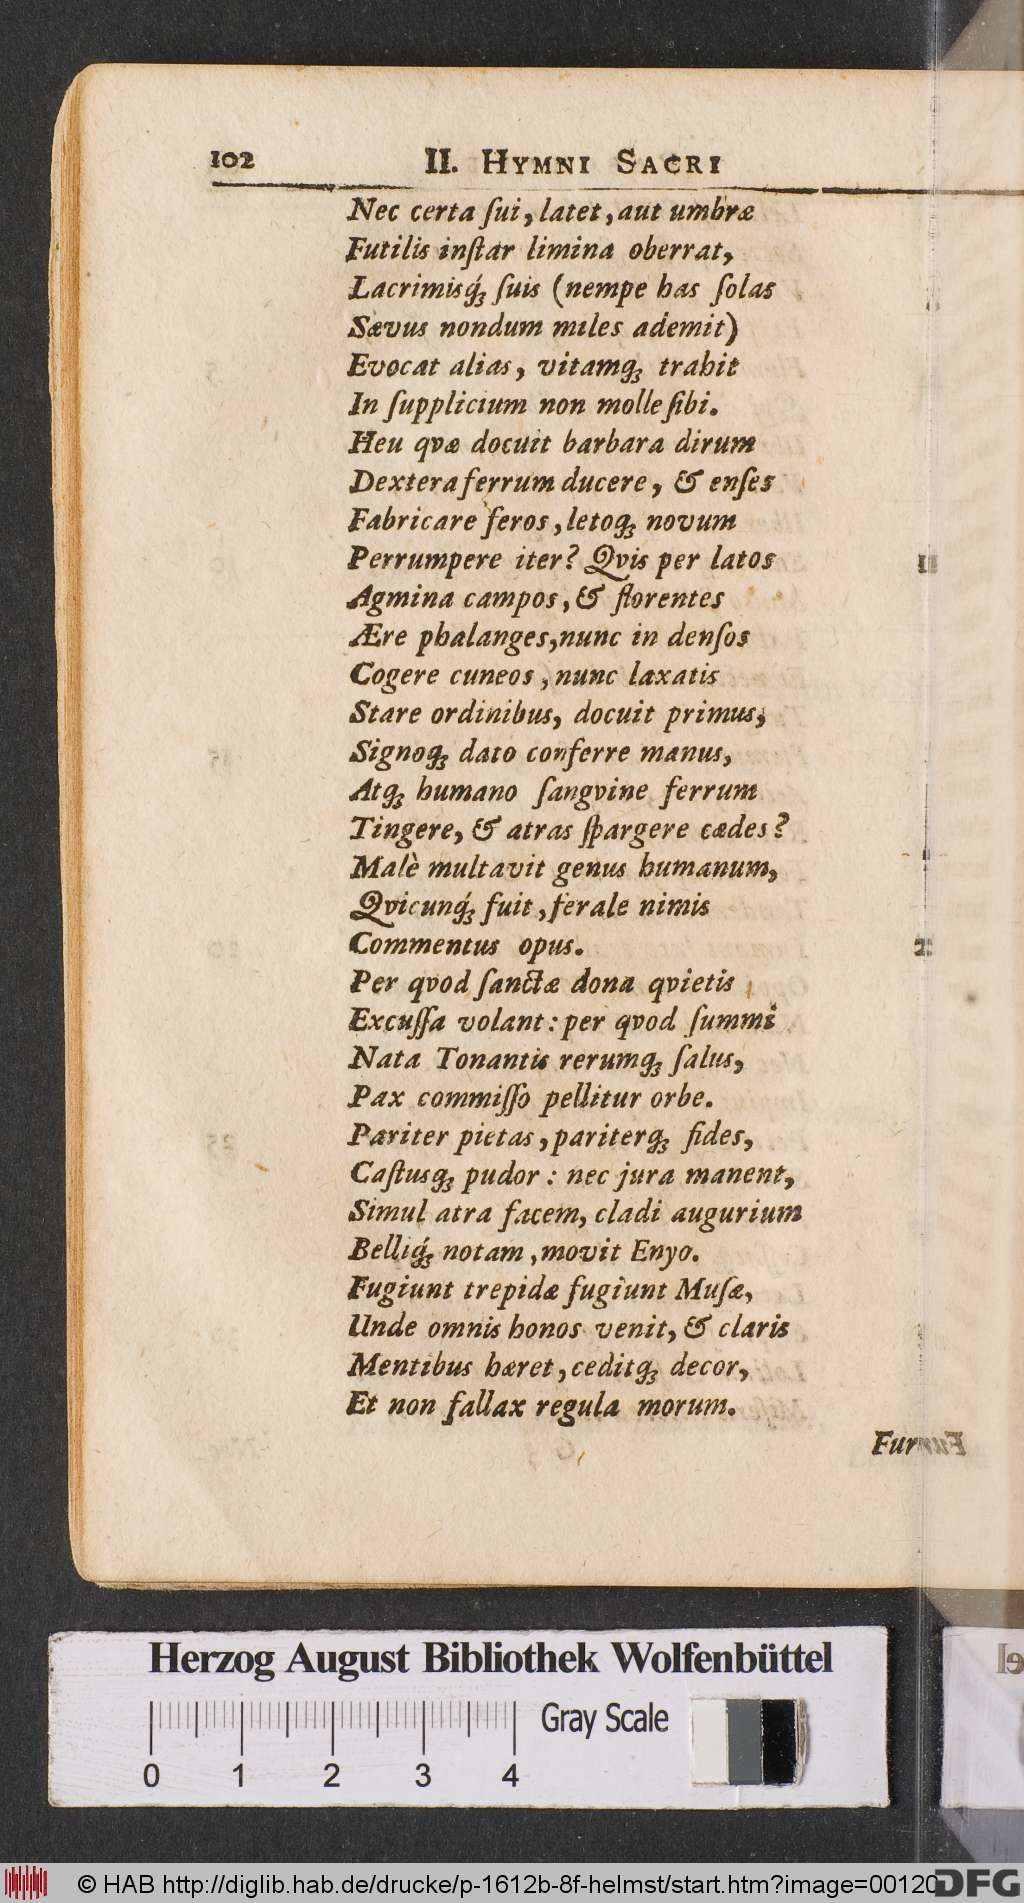 102 II. HYMNI SACRI
Nec certa ſui, latet, aut umbræ
Futilis inſtar limina oberrat,
Lacrimisq́ꝫ ſuis (nempe has ſolas
Sævus nondum miles ademit)
Evocat alias, vitamqꝫ trahit
In ſupplicium non molle ſibi.
Heu qvæ docuit barbara dirum
Dextera ferrum ducere, & enſes
Fabricare feros, letoqꝫ novum
Perrumpere iter? Qvis per latos
Agmina campos, & florentes
Ære phalanges, nunc in denſos
Cogere cuneos, nunc laxatis
Stare ordinibus, docuit primus,
Signoqꝫ dato conferre manus,
Atqꝫ humano ſangvine ferrum
Tingere, & atras ſpargere cædes?
Malè multavit genus humanum,
Qvicunq́ꝫ fuit, ferale nimis
Commentus opus.
Per qvod ſanctæ dona qvietis
Excuſſa volant: per qvod ſummi
Nata Tonantis rerumqꝫ ſalus,
Pax commiſſo pellitur orbe.
Pariter pietas, pariterqꝫ fides,
Caſtusqꝫ pudor: nec jura manent,
Simul atra facem, cladi augurium
Belliq́ꝫ notam, movit Enyo.
Fugiunt trepidæ fugiunt Muſæ,
Unde omnis honos venit, & claris
Mentibus hæret, ceditqꝫ decor,
Et non fallax regula morum.
Herzog August Bibliothek Wolfenbüttel
Gray Scale
0 1 2 3 4
© HAB http://diglib.hab.de/drucke/p-1612b-8f-helmst/start.htm?image=00120
DFG